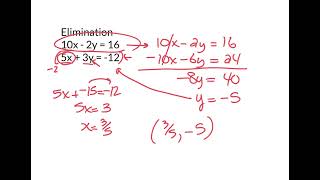 Elimination
10x - 2y = 16
5x + 3y = -12
-2
10x - 2y = 16
-10x - 6y = 24
-8y = 40
y = -5
5x + -15 = -12
5x = 3
x = 3/5
(3/5, -5)